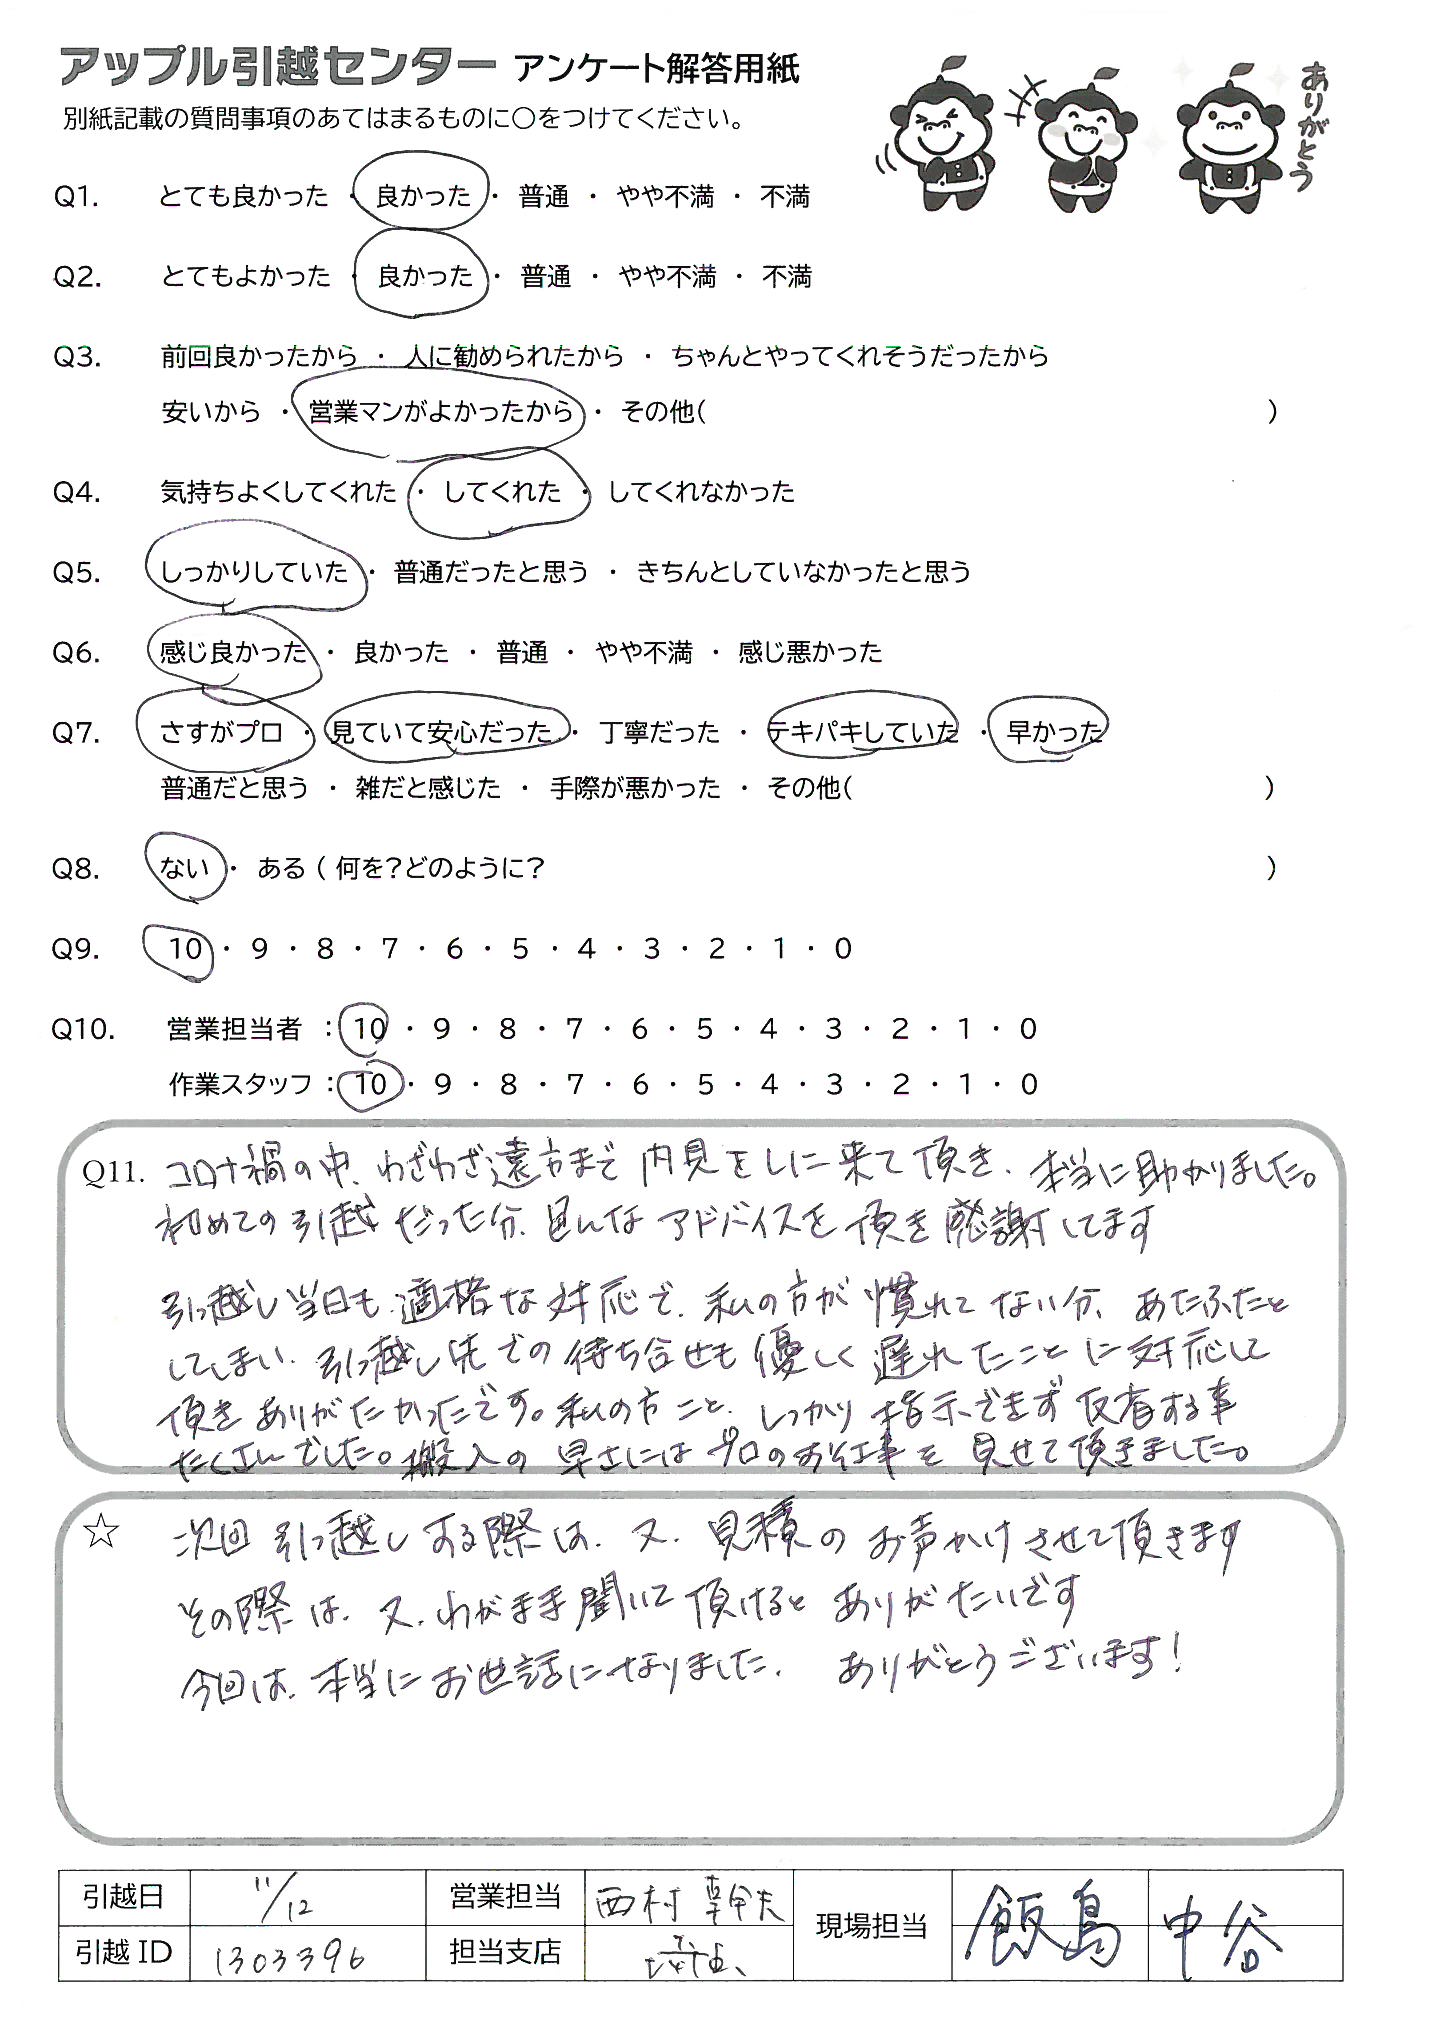 アップル引越センター アンケート解答用紙
ありがとう
別紙記載の質問事項のあてはまるものに○をつけてください。
Q1. とても良かった ・ 良かった ・ 普通 ・ やや不満 ・ 不満
Q2. とてもよかった ・ 良かった ・ 普通 ・ やや不満 ・ 不満
Q3. 前回良かったから ・ 人に勧められたから ・ ちゃんとやってくれそうだったから
安いから ・ 営業マンがよかったから ・ その他( )
Q4. 気持ちよくしてくれた ・ してくれた ・ してくれなかった
Q5. しっかりしていた ・ 普通だったと思う ・ きちんとしていなかったと思う
Q6. 感じ良かった ・ 良かった ・ 普通 ・ やや不満 ・ 感じ悪かった
Q7. さすがプロ ・ 見ていて安心だった ・ 丁寧だった ・ テキパキしていた ・ 早かった
普通だと思う ・ 雑だと感じた ・ 手際が悪かった ・ その他( )
Q8. ない ・ ある ( 何を?どのように? )
Q9. 10 ・ 9 ・ 8 ・ 7 ・ 6 ・ 5 ・ 4 ・ 3 ・ 2 ・ 1 ・ 0
Q10. 営業担当者 : 10 ・ 9 ・ 8 ・ 7 ・ 6 ・ 5 ・ 4 ・ 3 ・ 2 ・ 1 ・ 0
作業スタッフ : 10 ・ 9 ・ 8 ・ 7 ・ 6 ・ 5 ・ 4 ・ 3 ・ 2 ・ 1 ・ 0
Q11. コロナ禍の中、わざわざ遠方まで内見をしに来て頂き、本当に助かりました。
初めての引越だった分、色んなアドバイスを頂き感謝してます
引っ越し当日も適格な対応で、私の方が慣れてない分、あたふたと
してしまい、引っ越し先での待ち合せも優しく遅れたことに対応して
頂きありがたかったです。私の方こと、しっかり指示できず反省する事
たくさんでした。搬入の早さにはプロのお仕事を見せて頂きました。
☆ 次回引っ越しする際は、又、見積のお声かけさせて頂きます
その際は、又、わがまま聞いて頂けるとありがたいです
今回は、本当にお世話になりました。ありがとうございます!
引越日 11/12 営業担当 西村 幹夫 現場担当 飯島 中谷
引越ID 1303396 担当支店 埼玉